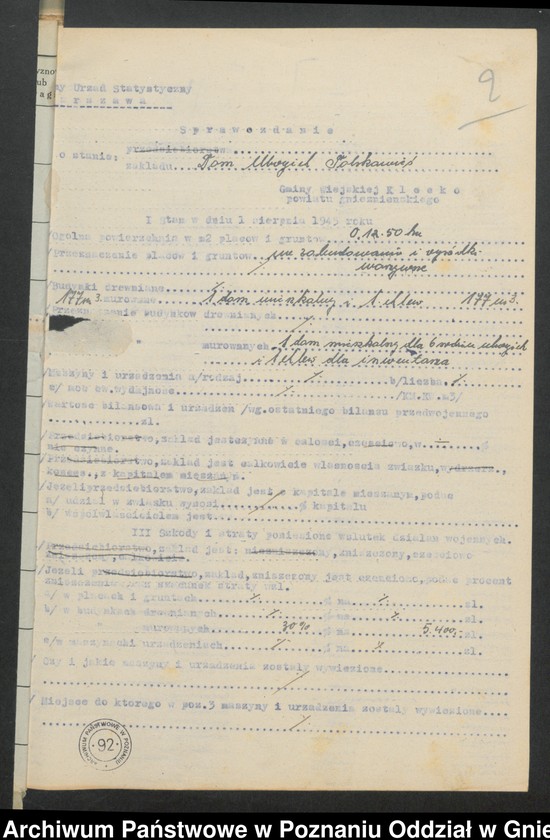 yzno
ub
ag
ny Urząd Statystyczny
r s z a w a
9
S p r a w o z d a n i e
o stanie: przedsiębiorstwa
zakładu Dom Ubogich
Gminy miejskiej K l e c k o
powiatu gnieznienskiego
I Stan w dniu 1 sierpnia 1945 roku
/Ogolna powierzchnia w m2 placow i gruntow 0,12.50 ha
/Przeznaczenie placow i gruntow pod zabudowania i ogródki
warzywne
/Budynki drewniane
177 m3. murowane 1 dom mieszkalny i 1 chlew 177 m3.
/Przeznaczenie budynkow drewnianych
" murowanych 1 dom mieszkalny dla 6 rodzin ubogich
i 1 chlew dla inwentarza
/Maszyny i urzadzenia a/rodzaj b/liczba
c/ moc ew.wydajnosc /KM.KW.m3/
/Wartosc bilansowa i urzadzen /wg.ostatniego bilansu przedwojennego
zl.
/Przedsiebiorstwo, zakład jest czynne w calosci, czesciowo, w %
nie czynne.
/Przedsiebiorstwo, zakład jest calkowicie wlasnoscia zwiazku, wydzierz.,
koncес., z kapitalem mieszanym.
/Jezeli przedsiebiorstwo, zakład jest o kapitale mieszanym, podac
a/ udzial w zwiazku wynosi % kapitalu
b/ wspolwlascicielem jest
III Szkody i straty poniesione wskutek dzialan wojennych.
/Przedsiebiorstwo, zakład jest: niezniszczony, zniszczony, czesciowo
/Jezeli przedsiebiorstwo, zakład, zniszczony jest czesciowo, podac procent
zniszczenia straty w zl.
a/ w placach i gruntach % na zl.
b/ w budynkach drewnianych % na zl.
" murowanych 30% % na 5.400,- zl.
c/w maszynach i urzadzeniach % na zl.
Czy i jakie maszyny i urzadzenia zostaly wywiezione
/ Miejsce do ktorego w poz.3 maszyny i urzadzenia zostaly wywiezione
ARCHIWUM PAŃSTWOWE W POZNANIU
92
Archiwum Państwowe w Poznaniu Oddział w Gnie